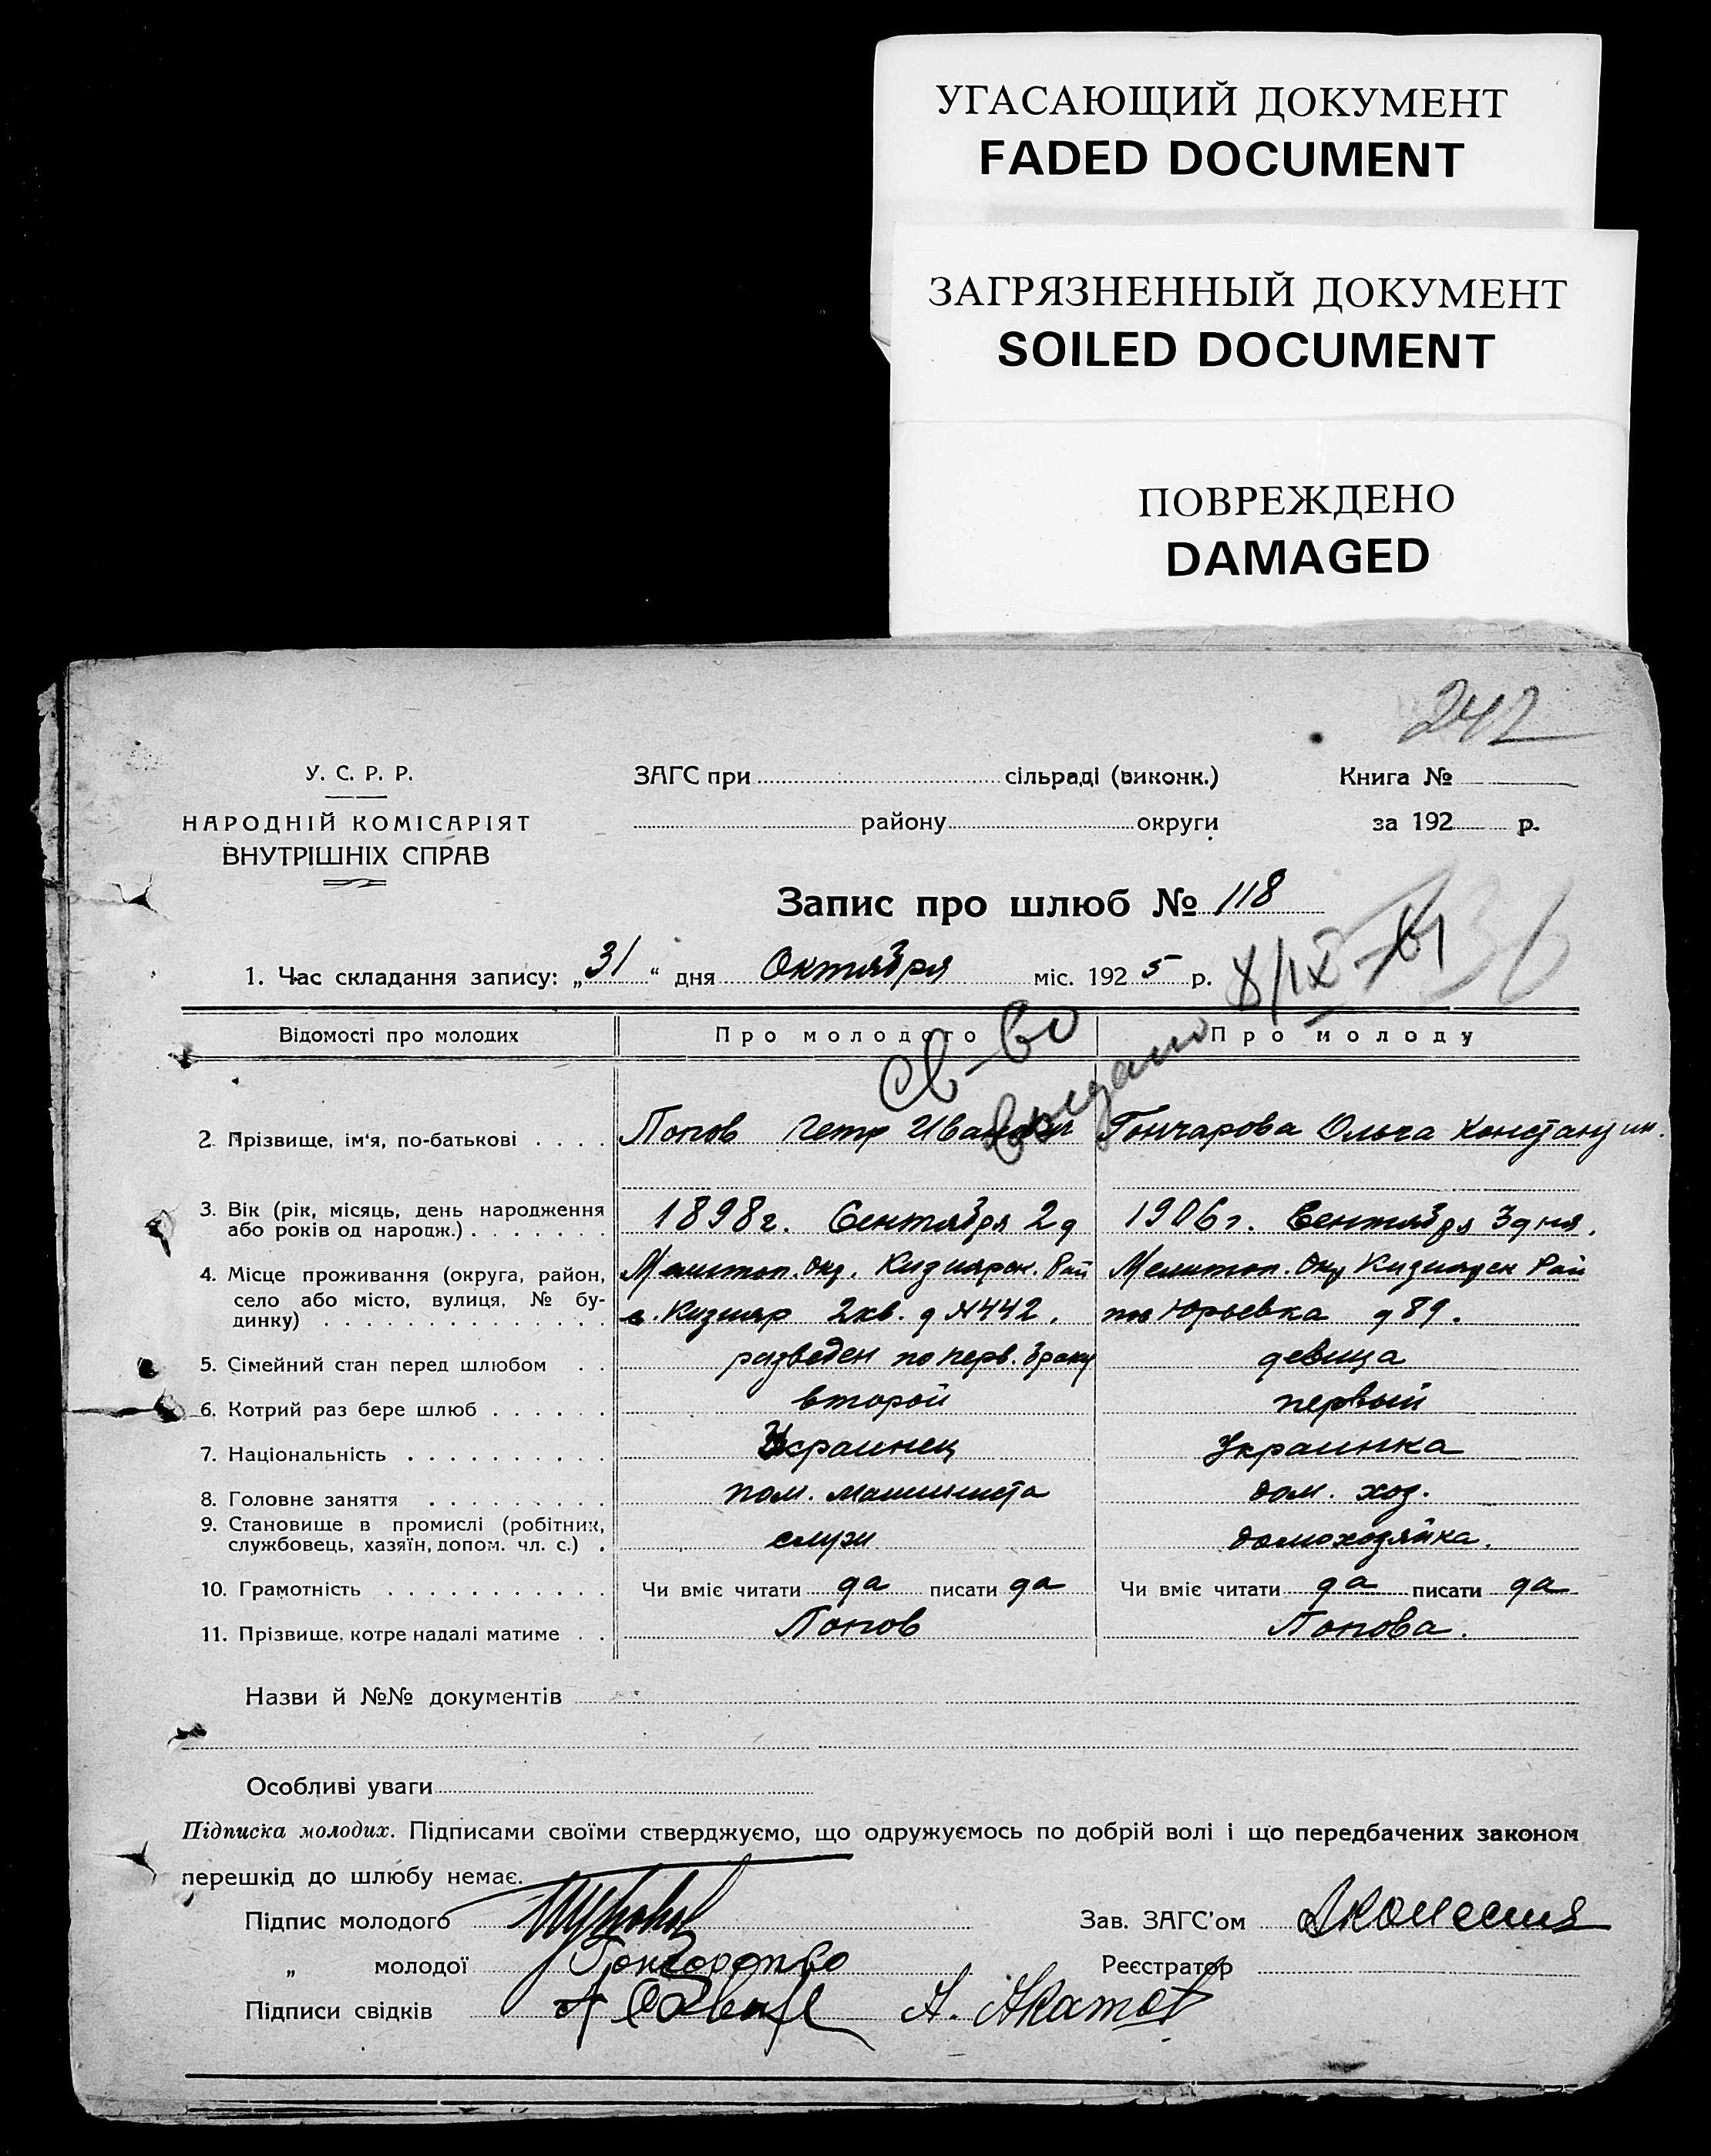 УГАСАЮЩИЙ ДОКУМЕНТ
FADED DOCUMENT
ЗАГРЯЗНЕННЫЙ ДОКУМЕНТ
SOILED DOCUMENT
ПОВРЕЖДЕНО
DAMAGED
242
У. С. Р. Р.
НАРОДНІЙ КОМІСАРІЯТ
ВНУТРІШНІХ СПРАВ
ЗАГС при сільраді (виконк.)
району округи
Книга №
за 192 р.
Запис про шлюб № 118
1. Час складання запису: „31“ дня Октября міс. 1925 р.
св-во
выдано 8/IX-61
36
Відомості про молодих Про молодого Про молоду
2. Прізвище, ім'я, по-батькові . . . . Попов Петр Иванович Гончарова Ольга Константин.
3. Вік (рік, місяць, день народження
або років од народж.) . . . . . . . 1898г. Сентября 2д 1906г. Сентября 3дня.
4. Місце проживання (округа, район, Мелитоп. Окр. Кизиярск. Рай Мелитоп. Окр Кизиярск Рай
село або місто, вулиця, № бу-
динку) . . . . . . . . . . . . . . с. Кизияр 2кв. д №442. пос Юрьевка д 89.
5. Сімейний стан перед шлюбом . . разведен по перв. браку девица
6. Котрий раз бере шлюб . . . . . . второй первый
7. Національність . . . . . . . . . . Украинец Украинка
8. Головне заняття . . . . . . . . . пом. машиниста дом. хоз.
9. Становище в промислі (робітник,
службовець, хазяїн, допом. чл. с.) . служ домохозяйка.
10. Грамотність . . . . . . . . . . . Чи вміє читати да писати да Чи вміє читати да писати да
11. Прізвище, котре надалі матиме . . Попов Попова.
Назви й №№ документів
Особливі уваги
Підписка молодих. Підписами своїми стверджуємо, що одружуємось по добрій волі і що передбачених законом
перешкід до шлюбу немає.
Підпис молодого Зав. ЗАГС'ом
„ молодої Реєстратор
Підписи свідків А.